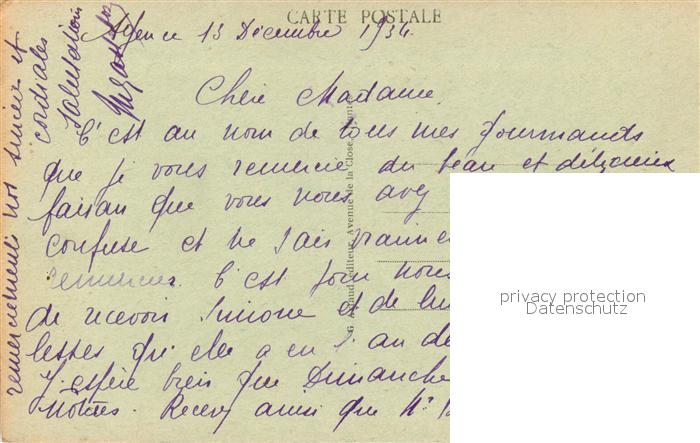 CARTE POSTALE
13 Décembre 1934.
Chère Madame
C'est au nom de tous mes gourmands
que je vous remercie du beau et délicieux
faisan que vous nous
confuse et ne sais
remercier. C'est pour nous
de recevoir Simone et de
qu'elle a eu l'an
J'espère bien que Dimanche
nôtres. Recevez ainsi que
remerciements nos sincères et
cordiales
salutations
G. Artaud, éditeur, Avenue de la Close, Nantes
privacy protection
Datenschutz